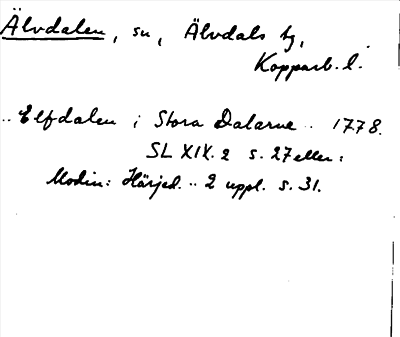 Älvdalen, sn, Älvdals tg,
Kopparb. l.
.. Elfdalen i Stora Dalarne .. 1778.
SL XIX. 2 s. 27 eller:
Modin: Härjed. .. 2 uppl. s. 31.